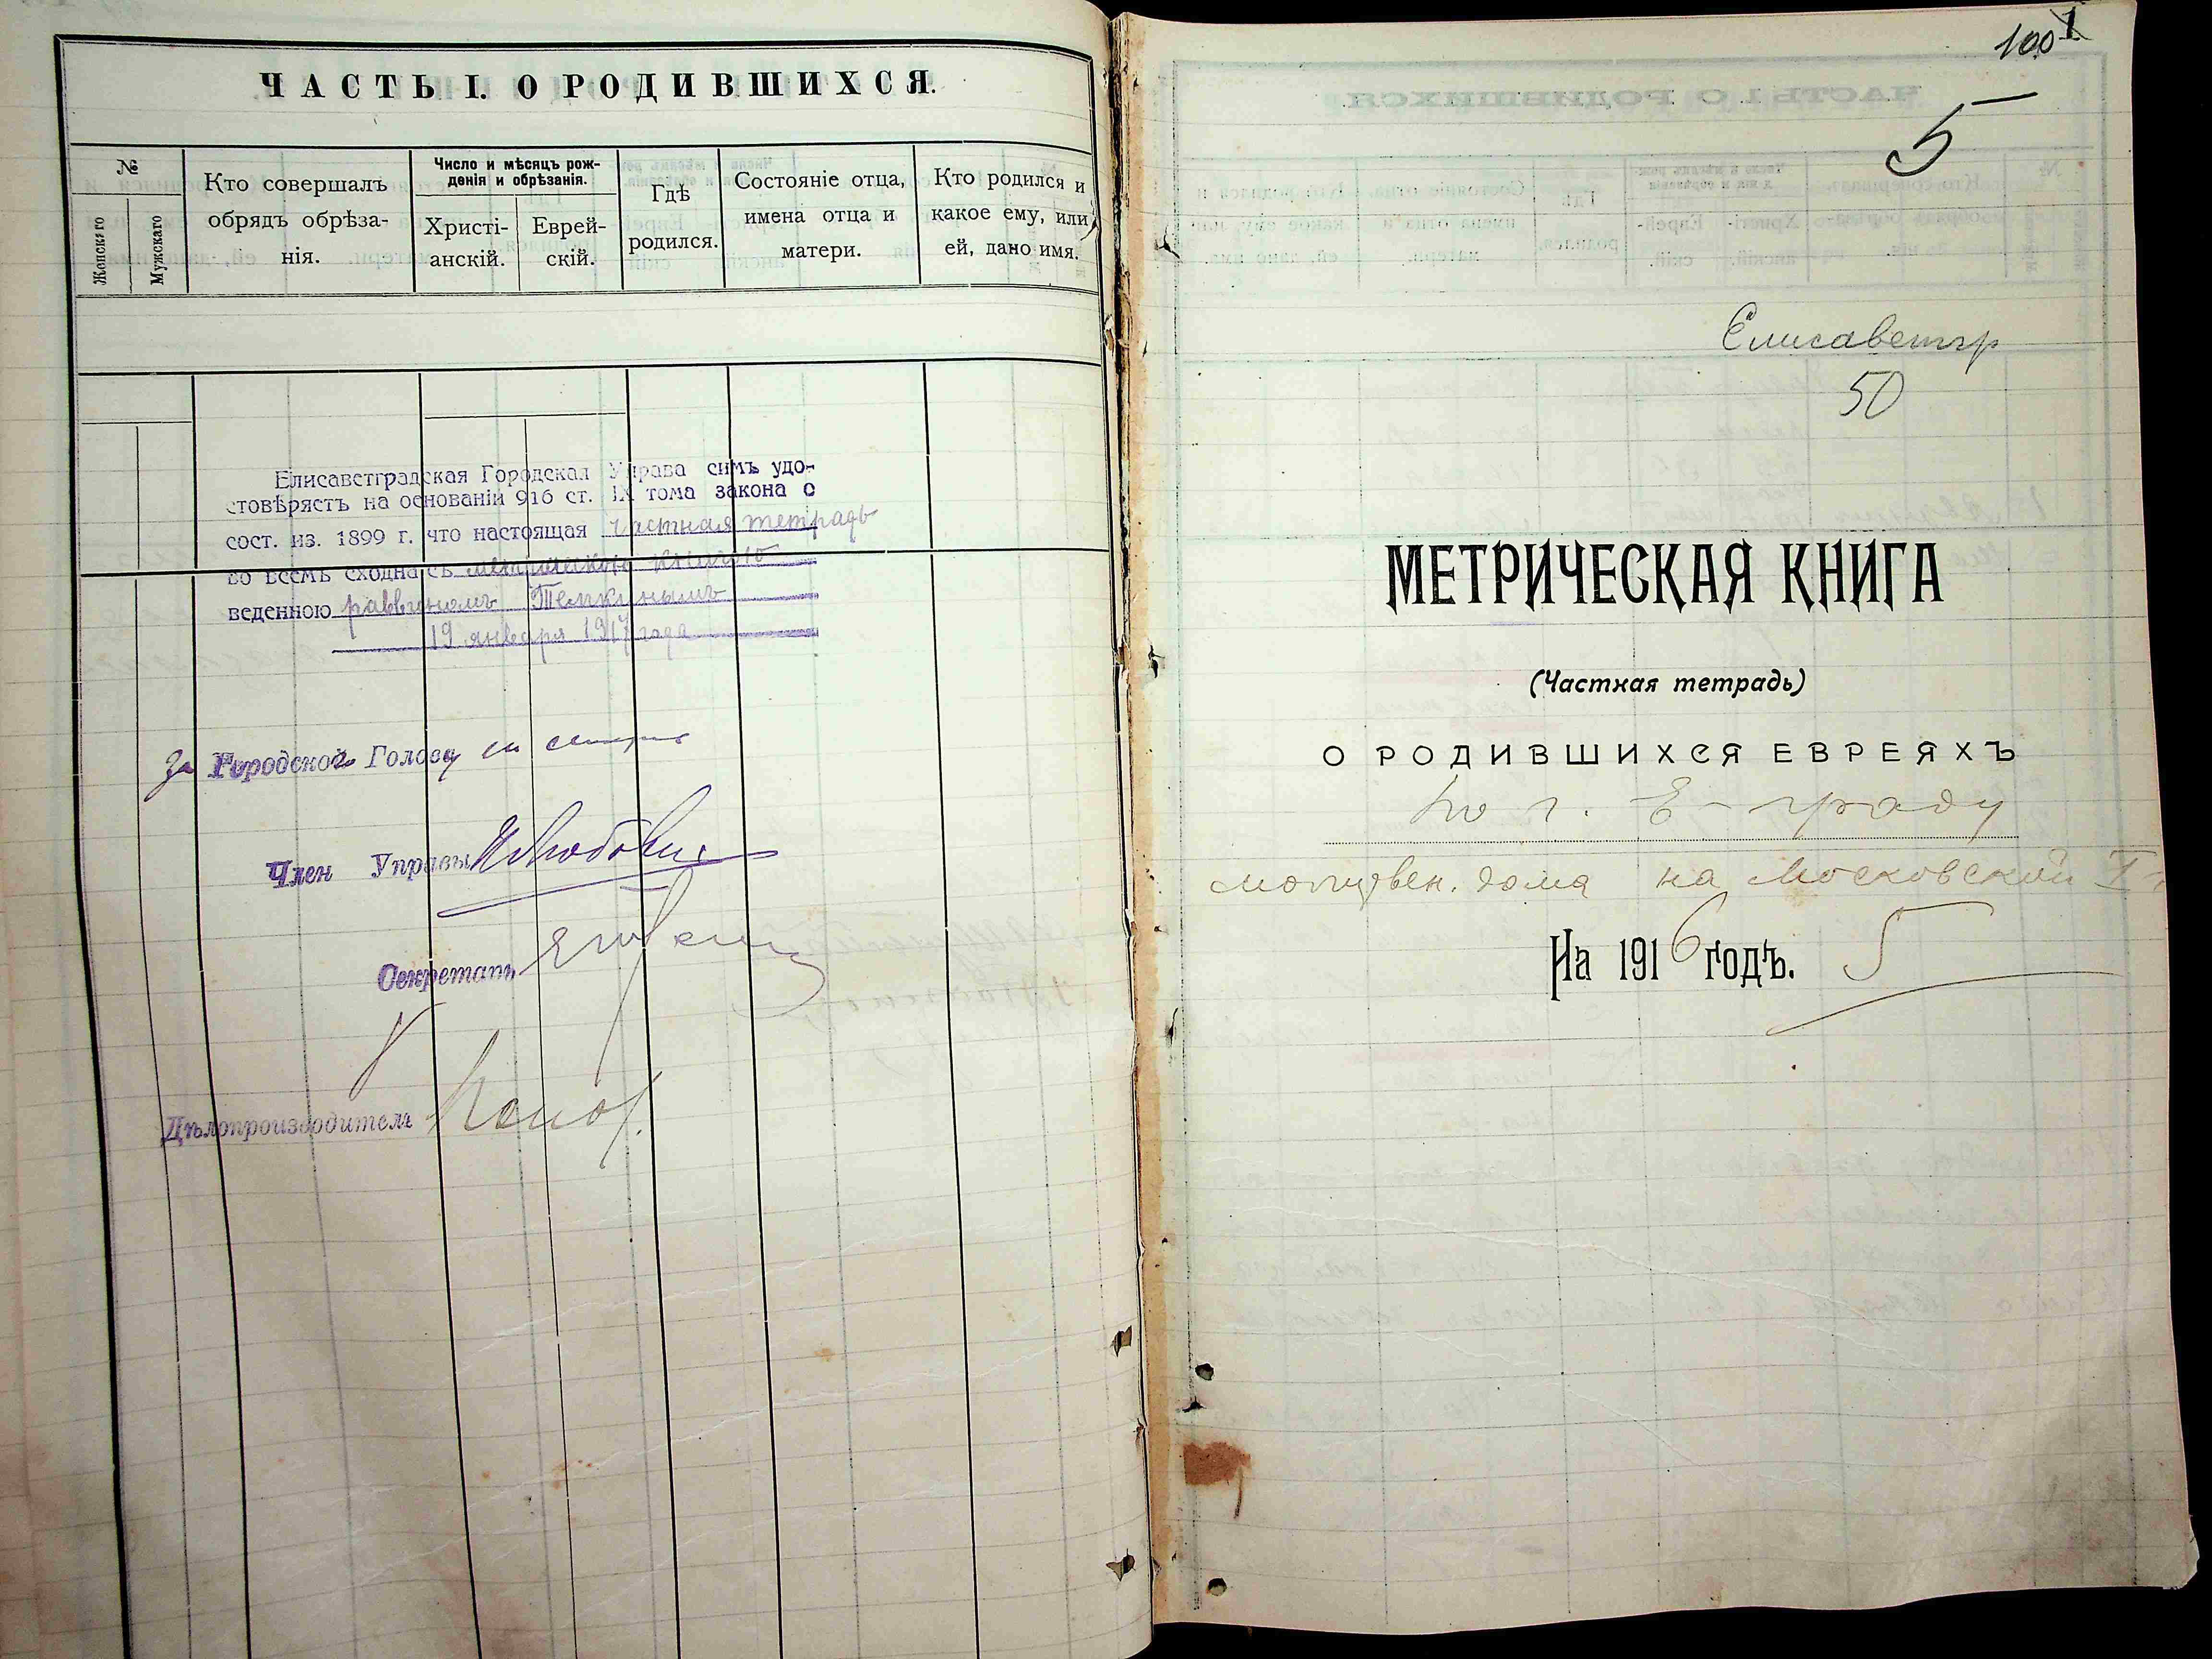 ЧАСТЬ I. О РОДИВШИХСЯ.
№
Женскаго
Мужскаго
Кто совершалъ
обрядъ обрѣза-
нія.
Число и мѣсяцъ рож-
денія и обрѣзанія.
Христі-
анскій.
Еврей-
скій.
Гдѣ
родился.
Состояніе отца,
имена отца и
матери.
Кто родился и
какое ему, или
ей, дано имя.
Елисаветградская Городская Управа симъ удо-
стовѣряетъ на основаніи 916 ст. IX тома закона о
сост. из. 1899 г. что настоящая частная тетрадь
во всемъ сходна съ метрическою книгою
веденною раввиномъ Темкинымъ
19 января 1917 года
за Городского Голову
Член Управы
Секретарь
Дѣлопроизводитель
100
1
5
Елисаветгр
50
МЕТРИЧЕСКАЯ КНИГА
(Частная тетрадь)
О РОДИВШИХСЯ ЕВРЕЯХЪ
по г. Е-граду
молитвен. дома на Московской I
На 1916 годъ. 5